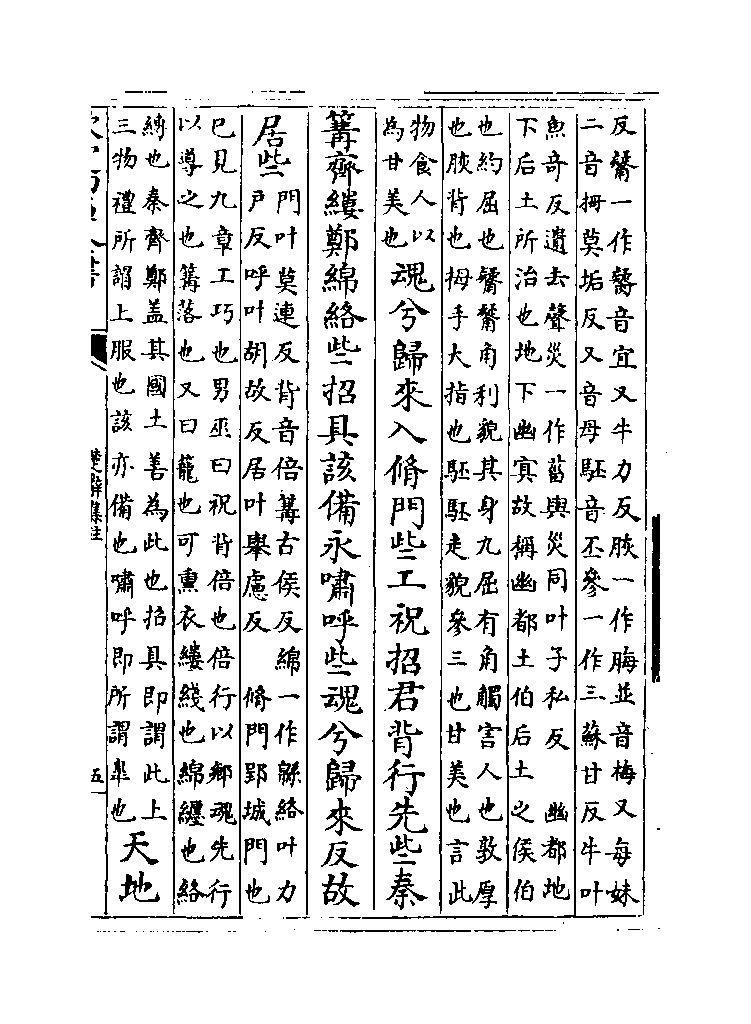 反觺一作䚫音宜又牛力反脥一作脢並音梅又每妹
二音拇莫垢反又音母駓音丕參一作三蘇甘反牛叶
魚奇反遺去聲災一作菑與災同叶子私反　幽都地
下后土所治也地下幽冥故稱幽都土伯后土之侯伯
也約屈也觺觺角利貌其身九屈有角觸害人也敦厚
也脥背也拇手大指也駓駓走貌參三也甘美也言此
物食人以
為甘美也
魂兮歸來入脩門些工祝招君背行先些秦
篝齊縷鄭綿絡些招具該備永嘯呼些魂兮歸來反故
居些
門叶莫連反背音倍篝古侯反綿一作緜絡叶力
户反呼叶胡故反居叶舉慮反　脩門郢城門也
已見九章工巧也男巫曰祝背倍也倍行以鄉魂先行
以導之也篝落也又曰籠也可熏衣縷綫也綿纒也絡
縛也秦齊鄭盖其國土善為此也招具即謂此上
三物禮所謂上服也該亦備也嘯呼即所謂臯也
天地
楚辭集註
五